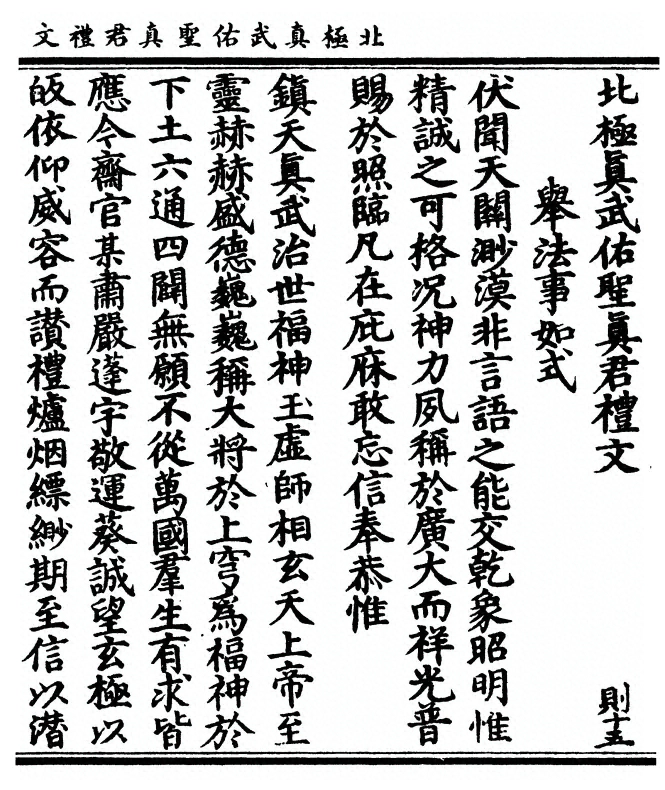 北極真武佑聖真君禮文
北極眞武佑聖眞君禮文 則十五
舉法事如式
伏聞天關渺漠非言語之能交乾象昭明惟
精誠之可格况神力夙稱於廣大而祥光普
賜於照臨凡在庇庥敢忘信奉恭惟
鎮天眞武治世福神玉虛師相玄天上帝至
靈赫赫盛德巍巍稱大將於上穹爲福神於
下土六通四闢無願不從萬國羣生有求皆
應今齋官某肅嚴蓬宇敬運葵誠望玄極以
皈依仰威容而讚禮爐烟縹緲期至信以潜